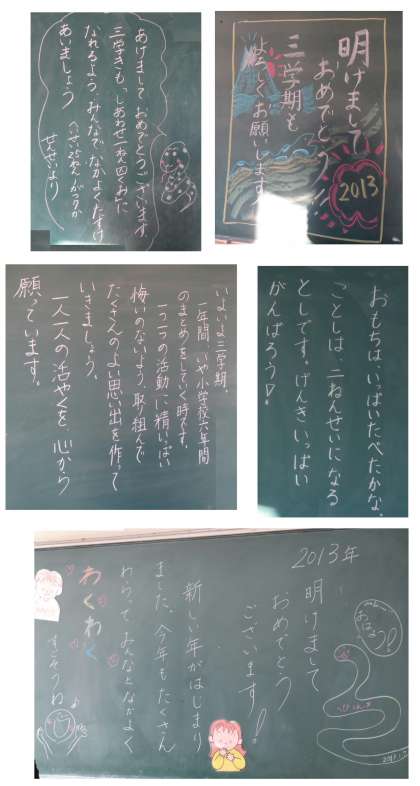 あけまして おめでとうございます
三学きも「しあわせ一ねん四くみ」に
なれるよう、みんなで、なかよくたすけ
あいましょう
せんせいより
明けまして
おめでとう!!
三学期も
よろしくお願いします
2013
いよいよ三学期。
一年間、いや小学校六年間
のまとめをしていく時です。
一つ一つの活動に精いっぱい
悔いのないよう、取り組んで
たくさんのよい思い出を作って
いきましょう。
一人一人の活やくを、心から
願っています。
おもちは、いっぱいたべたかな。
ことしは、二ねんせいになる
としです。げんきいっぱい
がんばろう!
2013年
明けまして
おめでとう
ございます!
新しい年がはじまり
ました。今年もたくさん
わらって みんなとなかよく
わくわく
すごそうね